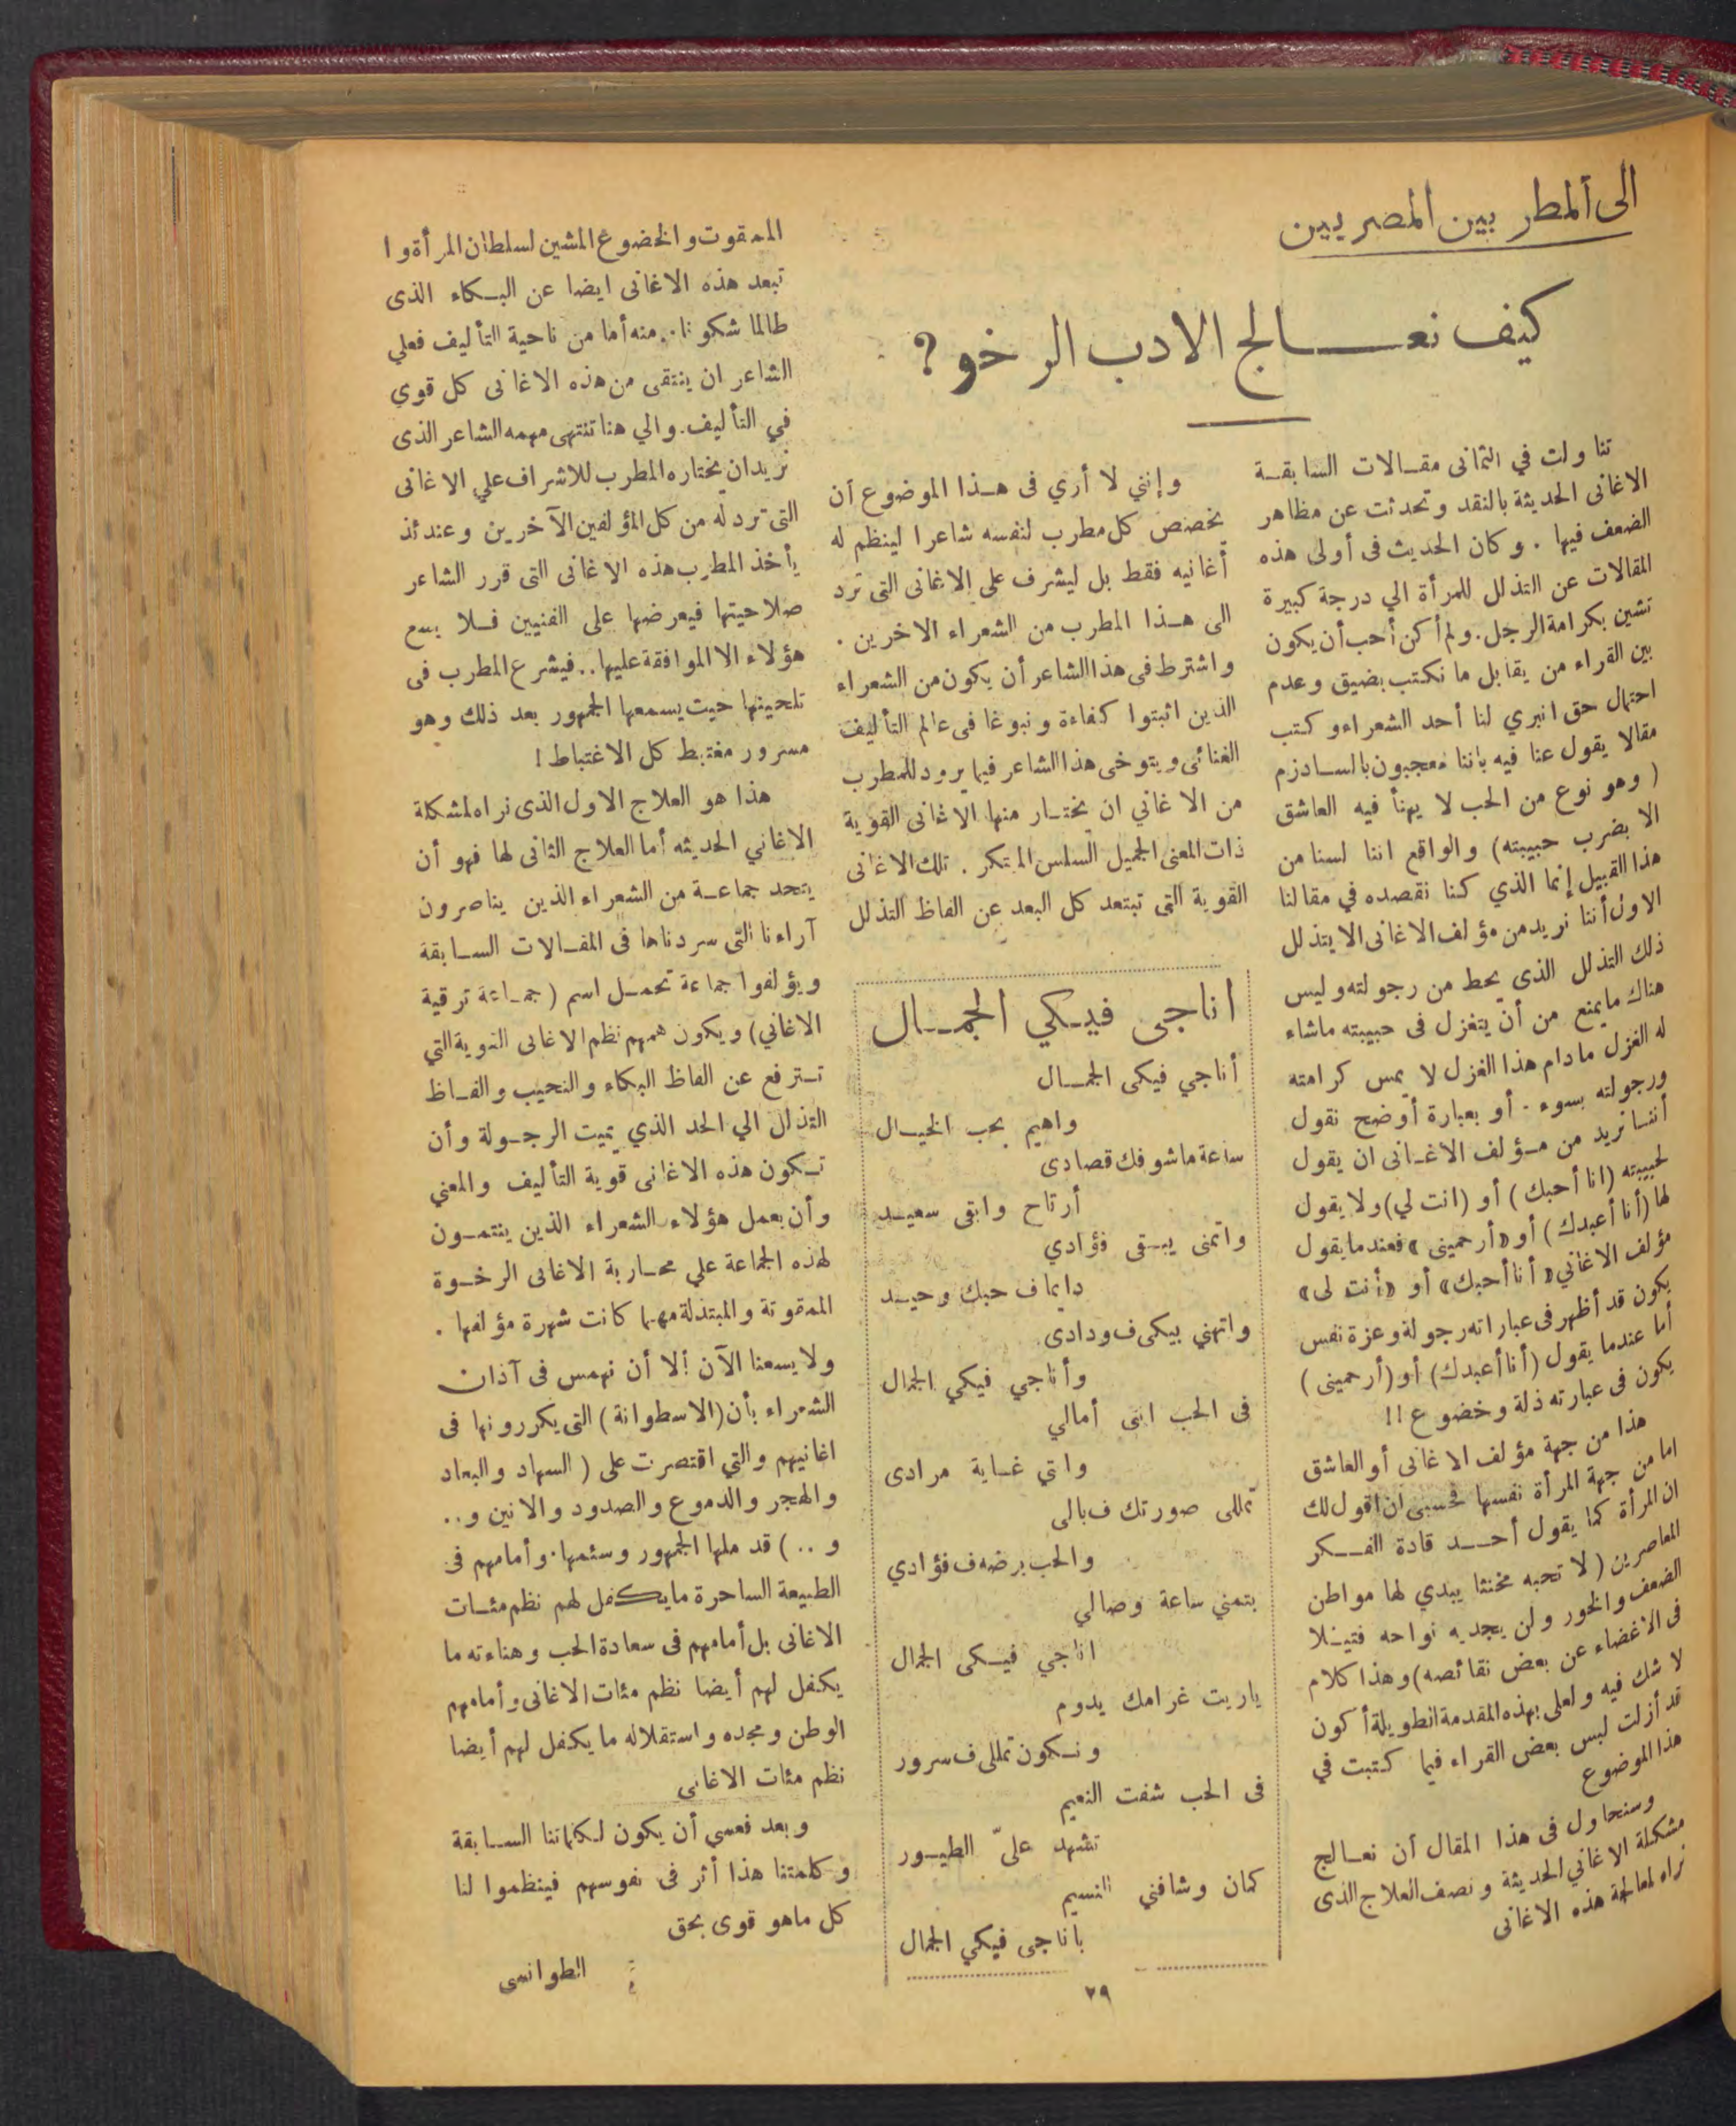 الى المطربين المصريين
كيف نعالج الادب الرخو ؟
تناولت في الثمانى مقالات السابقة
الاغانى الحديثة بالنقد وتحدثت عن مظاهر
الضعف فيها . وكان الحديث فى أولى هذه
المقالات عن التذلل للمرأة الي درجة كبيرة
تشين بكرامة الرجل . ولم أكن أحب أن يكون
بين القراء من يقابل ما نكتب بضيق وعدم
احتمال حق انبري لنا أحد الشعراء وكتب
مقالا يقول عنا فيه باننا معجبون بالسادزم
( وهو نوع من الحب لا يهنأ فيه العاشق
الا بضرب حبيبته ) والواقع اننا لسنا من
هذا القبيل إنما الذي كنا نقصده في مقالنا
الاول أننا نريد من مؤلف الاغانى الا يتذلل
ذلك التذلل الذى يحط من رجولته وليس
هناك ما يمنع من أن يتغزل فى حبيبته ما شاء
له الغزل ما دام هذا الغزل لا يمس كرامته
ورجولته بسوء . أو بعبارة أوضح نقول
أننا نريد من مؤلف الاغانى ان يقول
لحبيبته ( انا أحبك ) أو ( انت لي ) ولا يقول
لها ( أنا أعبدك ) أو « أرحمينى » فعندما يقول
مؤلف الاغاني « أنا أحبك » أو « أنت لى »
يكون قد أظهر فى عباراته رجولة وعزة نفس
أما عندما يقول ( أنا أعبدك ) أو ( أرحمينى )
يكون فى عبارته ذلة وخضوع !!
هذا من جهة مؤلف الاغانى أو العاشق
اما من جهة المرأة نفسها فحسبى ان اقول لك
ان المرأة كما يقول أحد قادة الفكر
المعاصرين ( لا تحبه مخنثا يبدي لها مواطن
الضعف والخور ولن يجديه نواحه فتيلا
فى الاغضاء عن بعض نقائصه ) وهذا كلام
لا شك فيه ولعلى بهذه المقدمة الطويلة أكون
قد أزلت لبس بعض القراء فيما كتبت في
هذا الموضوع
وسنحاول فى هذا المقال أن نعالج
مشكلة الاغاني الحديثة ونصف العلاج الذى
نراه لمعالجة هذه الاغانى
وإنني لا أري فى هذا الموضوع أن
يخصص كل مطرب لنفسه شاعرا لينظم له
أغانيه فقط بل ليشرف على الاغانى التى ترد
الى هذا المطرب من الشعراء الاخرين .
واشترط فى هذا الشاعر أن يكون من الشعراء
الذين اثبتوا كفاءة ونبوغا فى عالم التأليف
الغنائى ويتوخى هذا الشاعر فيما يرود للمطرب
من الاغاني ان يختار منها الاغانى القوية
ذات المعنى الجميل السلس المبتكر . تلك الاغانى
القوية التى تبتعد كل البعد عن الفاظ التذلل
اناجى فيكي الجمال
أناجي فيكى الجمال
واهيم بحب الخيال
ساعة ماشوفك قصادى
أرتاح وابقى سعيد
واتمنى يبقى فؤادي
دايما ف حبك وحيد
واتهني بيكى ف ودادى
وأناجي فيكي الجمال
فى الحب انتى أمالي
وانتي غاية مرادى
تمللى صورتك ف بالى
والحب برضه ف فؤادي
بتمني ساعة وصالي
اناجي فيكى الجمال
ياريت غرامك يدوم
ونكون تمللى ف سرور
فى الحب شفت النعيم
تشهد علىّ الطيور
كمان وشافني النسيم
باناجى فيكي الجمال
الممقوت والخضوع المشين لسلطان المرأة وا
تبعد هذه الاغانى ايضا عن البكاء الذى
طالما شكونا . منه أما من ناحية التأليف فعلي
الشاعر ان ينتقى من هذه الاغانى كل قوي
في التأليف . والي هنا تنتهى مهمه الشاعر الذى
نريد ان يختاره المطرب للاشراف علي الاغانى
التى ترد له من كل المؤلفين الآخرين وعندئذ
يأخذ المطرب هذه الاغانى التى قرر الشاعر
صلاحيتها فيعرضها على الفنيين فلا يسع
هؤلاء الا الموافقة عليها .. فيشرع المطرب فى
تلحينها حيث يسمعها الجمهور بعد ذلك وهو
مسرور مغتبط كل الاغتباط !
هذا هو العلاج الاول الذى نراه لمشكلة
الاغاني الحديثه أما العلاج الثانى لها فهو أن
يتحد جماعة من الشعراء الذين يناصرون
آراءنا التى سردناها فى المقالات السابقة
ويؤلفوا جماعة تحمل اسم ( جماعة ترقية
الاغاني ) ويكون همهم نظم الاغانى القوية التي
تترفع عن الفاظ البكاء والنحيب والفاظ
التذلل الي الحد الذي يميت الرجولة وأن
تكون هذه الاغانى قوية التأليف والمعني
وأن يعمل هؤلاء الشعراء الذين ينتمون
لهذه الجماعة علي محاربة الاغانى الرخوة
الممقوتة والمبتذلة مهما كانت شهرة مؤلفها .
ولا يسعنا الآن إلا أن نهمس فى آذان
الشعراء بأن ( الاسطوانة ) التى يكررونها فى
اغانيهم والتي اقتصرت على ( السهاد والبعاد
والهجر والدموع والصدود والانين و ..
و .. ) قد ملها الجمهور وسئمها . وأمامهم فى
الطبيعة الساحرة ما يكفل لهم نظم مئات
الاغانى بل أمامهم فى سعادة الحب وهناءته ما
يكفل لهم أيضا نظم مئات الاغانى وأمامهم
الوطن ومجده واستقلاله ما يكفل لهم أيضا
نظم مئات الاغانى
وبعد فعسي أن يكون لكلماتنا السابقة
وكلمتنا هذا أثر فى نفوسهم فينظموا لنا
كل ماهو قوى بحق
الطوانسى
٢٩